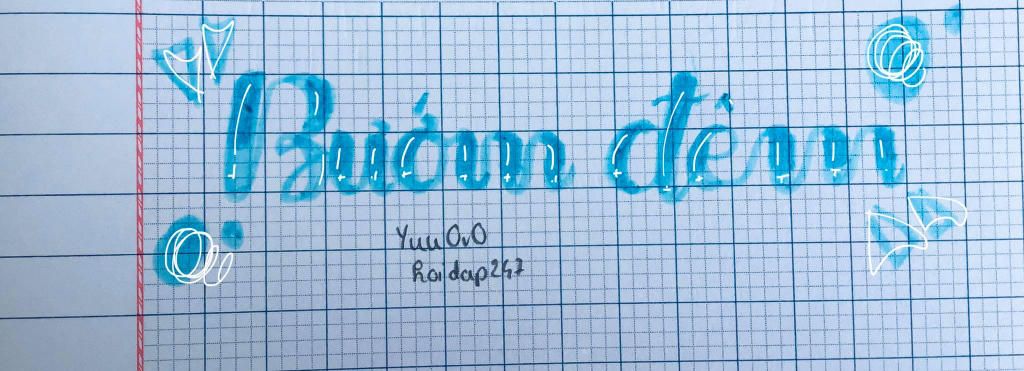 Bướm đêm
Yuu0v0
hoidap247